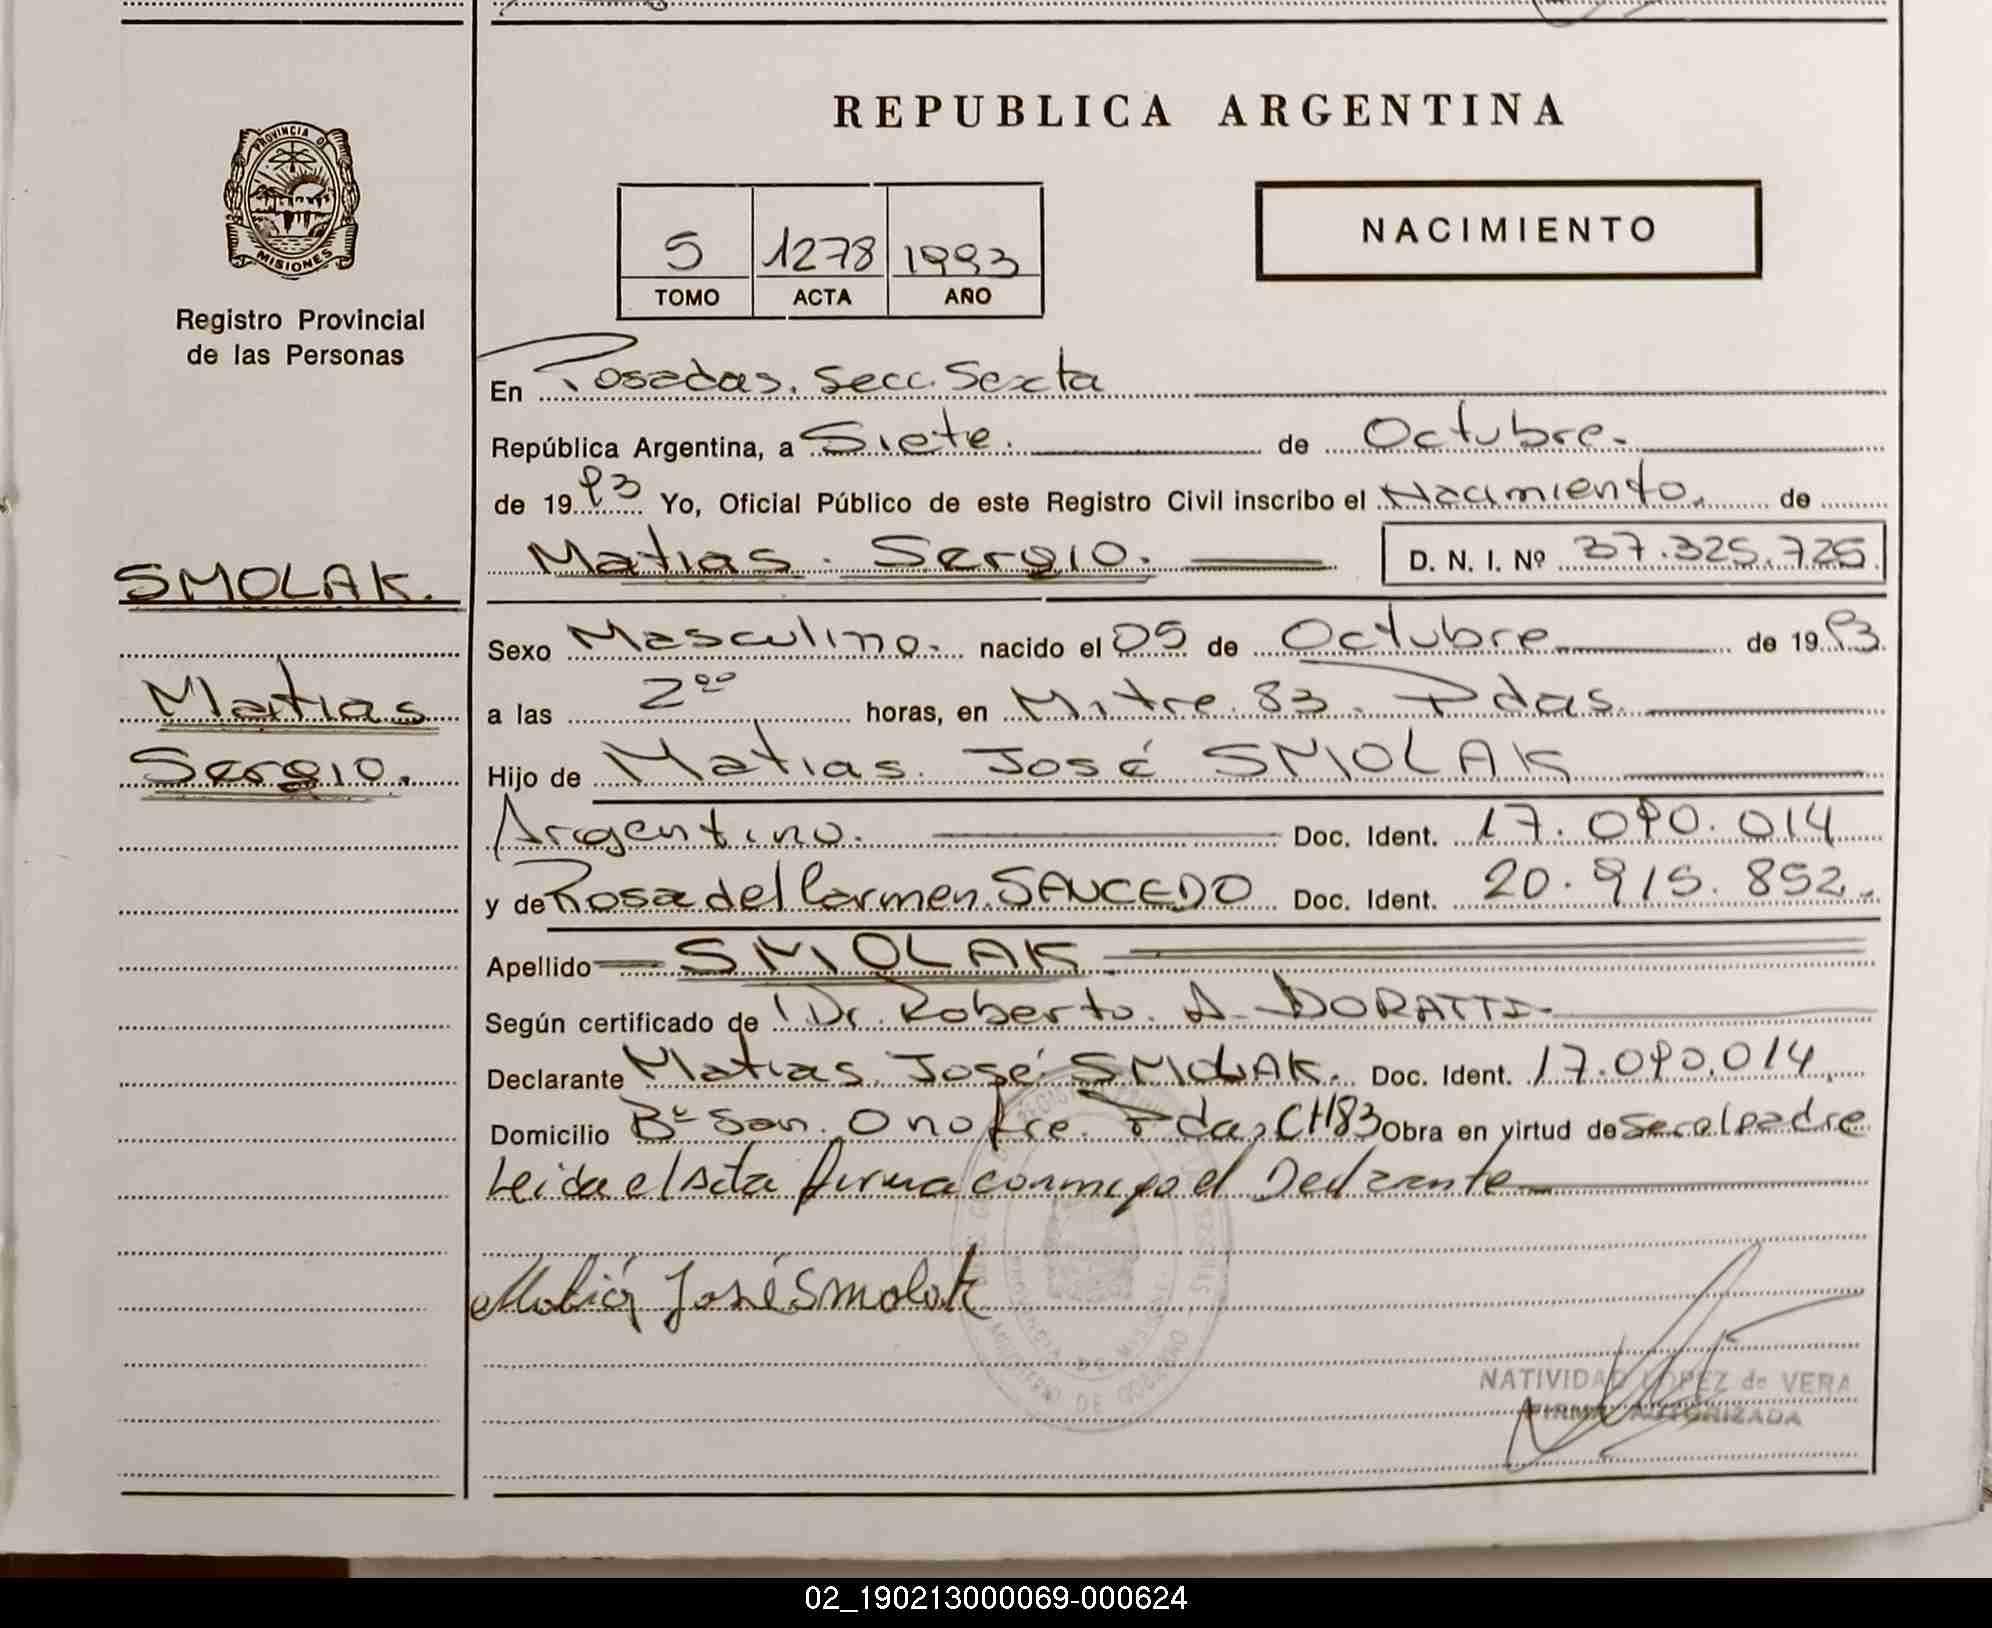 REPUBLICA ARGENTINA
PROVINCIA D
MISIONES
Registro Provincial
de las Personas
NACIMIENTO
5 1278 1993
TOMO ACTA AÑO
En Posadas. Secc. Sexta
República Argentina, a Siete. de Octubre.
de 1993 Yo, Oficial Público de este Registro Civil inscribo el Nacimiento. de
Matias. Sergio. D. N. I. Nº 37.325.725
SMOLAK.
Matias
Sergio.
Sexo Masculino. nacido el 05 de Octubre de 1993.
a las 2⁰⁰ horas, en Mitre 83. Pdas.
Hijo de Matias. José SMOLAK
Argentino. Doc. Ident. 17.090.014
y de Rosa del Carmen. SAUCEDO Doc. Ident. 20.915.852.
Apellido SMOLAK
Según certificado de Dr. Roberto. A. DORATTI
Declarante Matias. José SMOLAK. Doc. Ident. 17.090.014
Domicilio Bº San. Onofre. Pdas, CH83 Obra en virtud de Ser el padre
Leida el Acta firma conmigo el Declarante
Matias José Smolak
PROVINCIA DE MISIONES
MINISTERIO DE GOBIERNO
NATIVIDAD LOPEZ de VERA
FIRMA AUTORIZADA
02_190213000069-000624